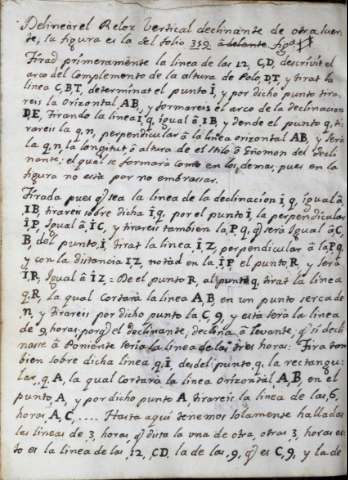 Delinear el Relox Vertical declinante de otra suer-
te, su figura es la del folio 352 adelante fig.ª
Tirad primeramente la linea de las 12, CD, descrivid el
arco del Complemento de la altura de Polo, D,T, y tirad la
linea C,B,T, determinad el punto I, y por dicho punto tira-
reis la Orizontal AB, y formareis el arco de la declinacion
D,E, tirando la linea I,q, igual â IB, y donde el punto q, ti-
rareis la q,n, perpendicular â la linea orizontal AB, y serà
la q,n, la longitut ô altura de el stilo ô Gñomon del decli-
nante, el qual se formarà como en los demas, pues en la
figura no està por no embarasar.
Tirada pues q̃ sea la linea de la declinacion I,q, igual â
IB, tirareis sobre dicha I,q, por el punto I, la perpendicular
I,P, igual â I,C, y tirareis tambien la P,q, q̃ serà igual â C,
B, del punto I, tirad la linea I,Z, perpendicular â la P,q,
y con la distancia IZ, notad en la I,P, el punto R, y serà
I,R, igual â IZ = De el punto R, al punto q, tirad la linea
q,R, la qual cortarà la linea A,B, en un punto serca de
n, y tirareis por dicho punto la C,9, y esta serà la linea
de 9, horas, porq̃ el declinante, declina â levante, q̃ si decli-
nase â Poniente seria la linea de las tres horas: Tira tam-
bien sobre dicha linea q,I, desde el punto q, la rectangu-
lar, q,A, la qual cortarà la linea Orizontal A,B, en el
punto A, y por dicho punto A, tirareis la linea de las 6,
horas A,C, .... Hasta aqui tenemos solamente halladas
las lineas de 3, horas, q̃ dista la una de otra, otras 3, horas es-
to es la linea de las 12, CD, la de las 9, q̃ es C,9, y la de